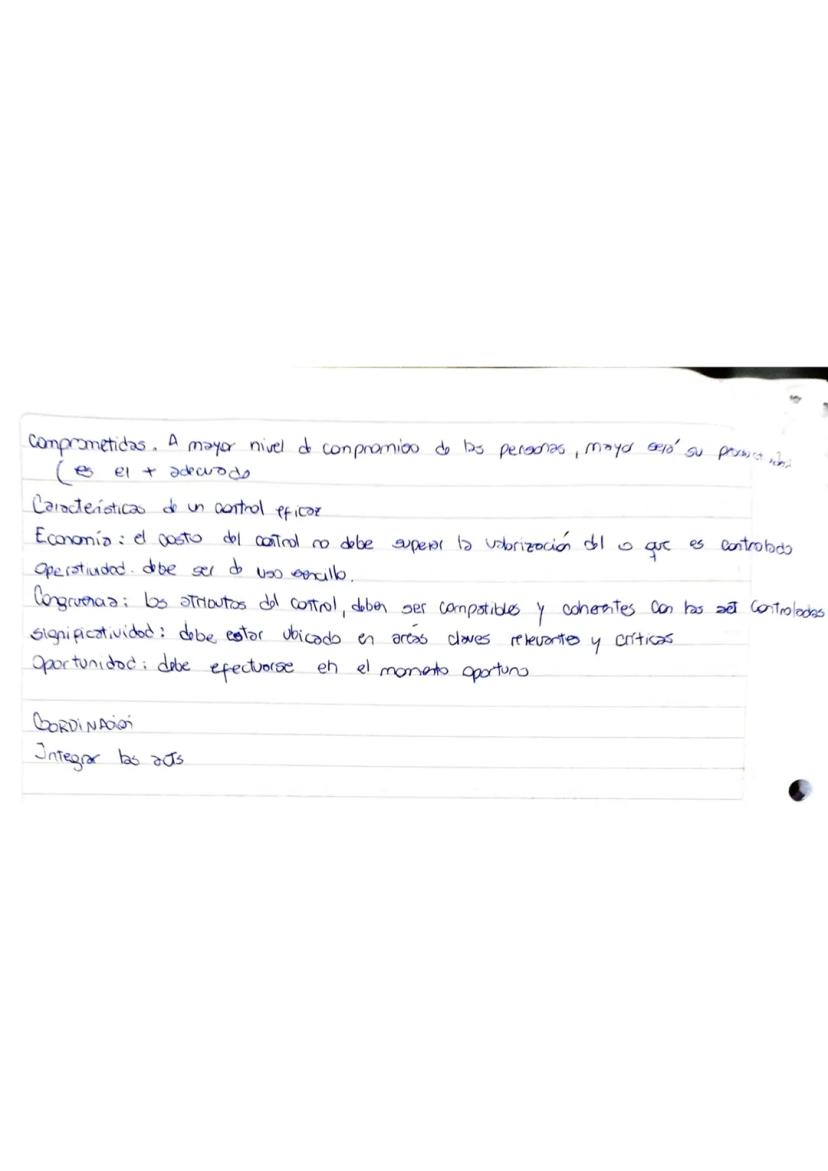 comprometidas. A mayor nivel d conpromiso de las personas, mayor será su
(es el + adecuado
Características de un control eficaz
Economía: el costo del control no debe superar la valorización dl o que es controlado
Operatividad. debe ser d uso sencillo.
Congruencia: los atributos del control, deben ser compatibles y coherentes con las act controladas
significatividad: debe estar ubicado en areás claves relevantes y críticas
Oportunidad: debe efectuarse en el momento oportuno
COORDINACión
Integrar las acts